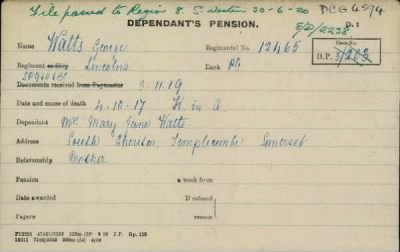 File passed to Region 8. S. Western 30-6-20 DCG 6294
DEPENDANT'S PENSION. D.1
5/D/2238
Name Watts George Regimental No. 12465
Case No.
D.P. 3/203
Regiment or Ship Lincolns Rank Pte
Documents received from Paymaster 3.11.19
Date and cause of death 4-10-17 K. in A.
Dependant Mrs Mary Jane Watts
Address South Cheriton, Templecombe Somerset
Relationship Mother
Pension a week from
Date awarded If refused
Papers reason